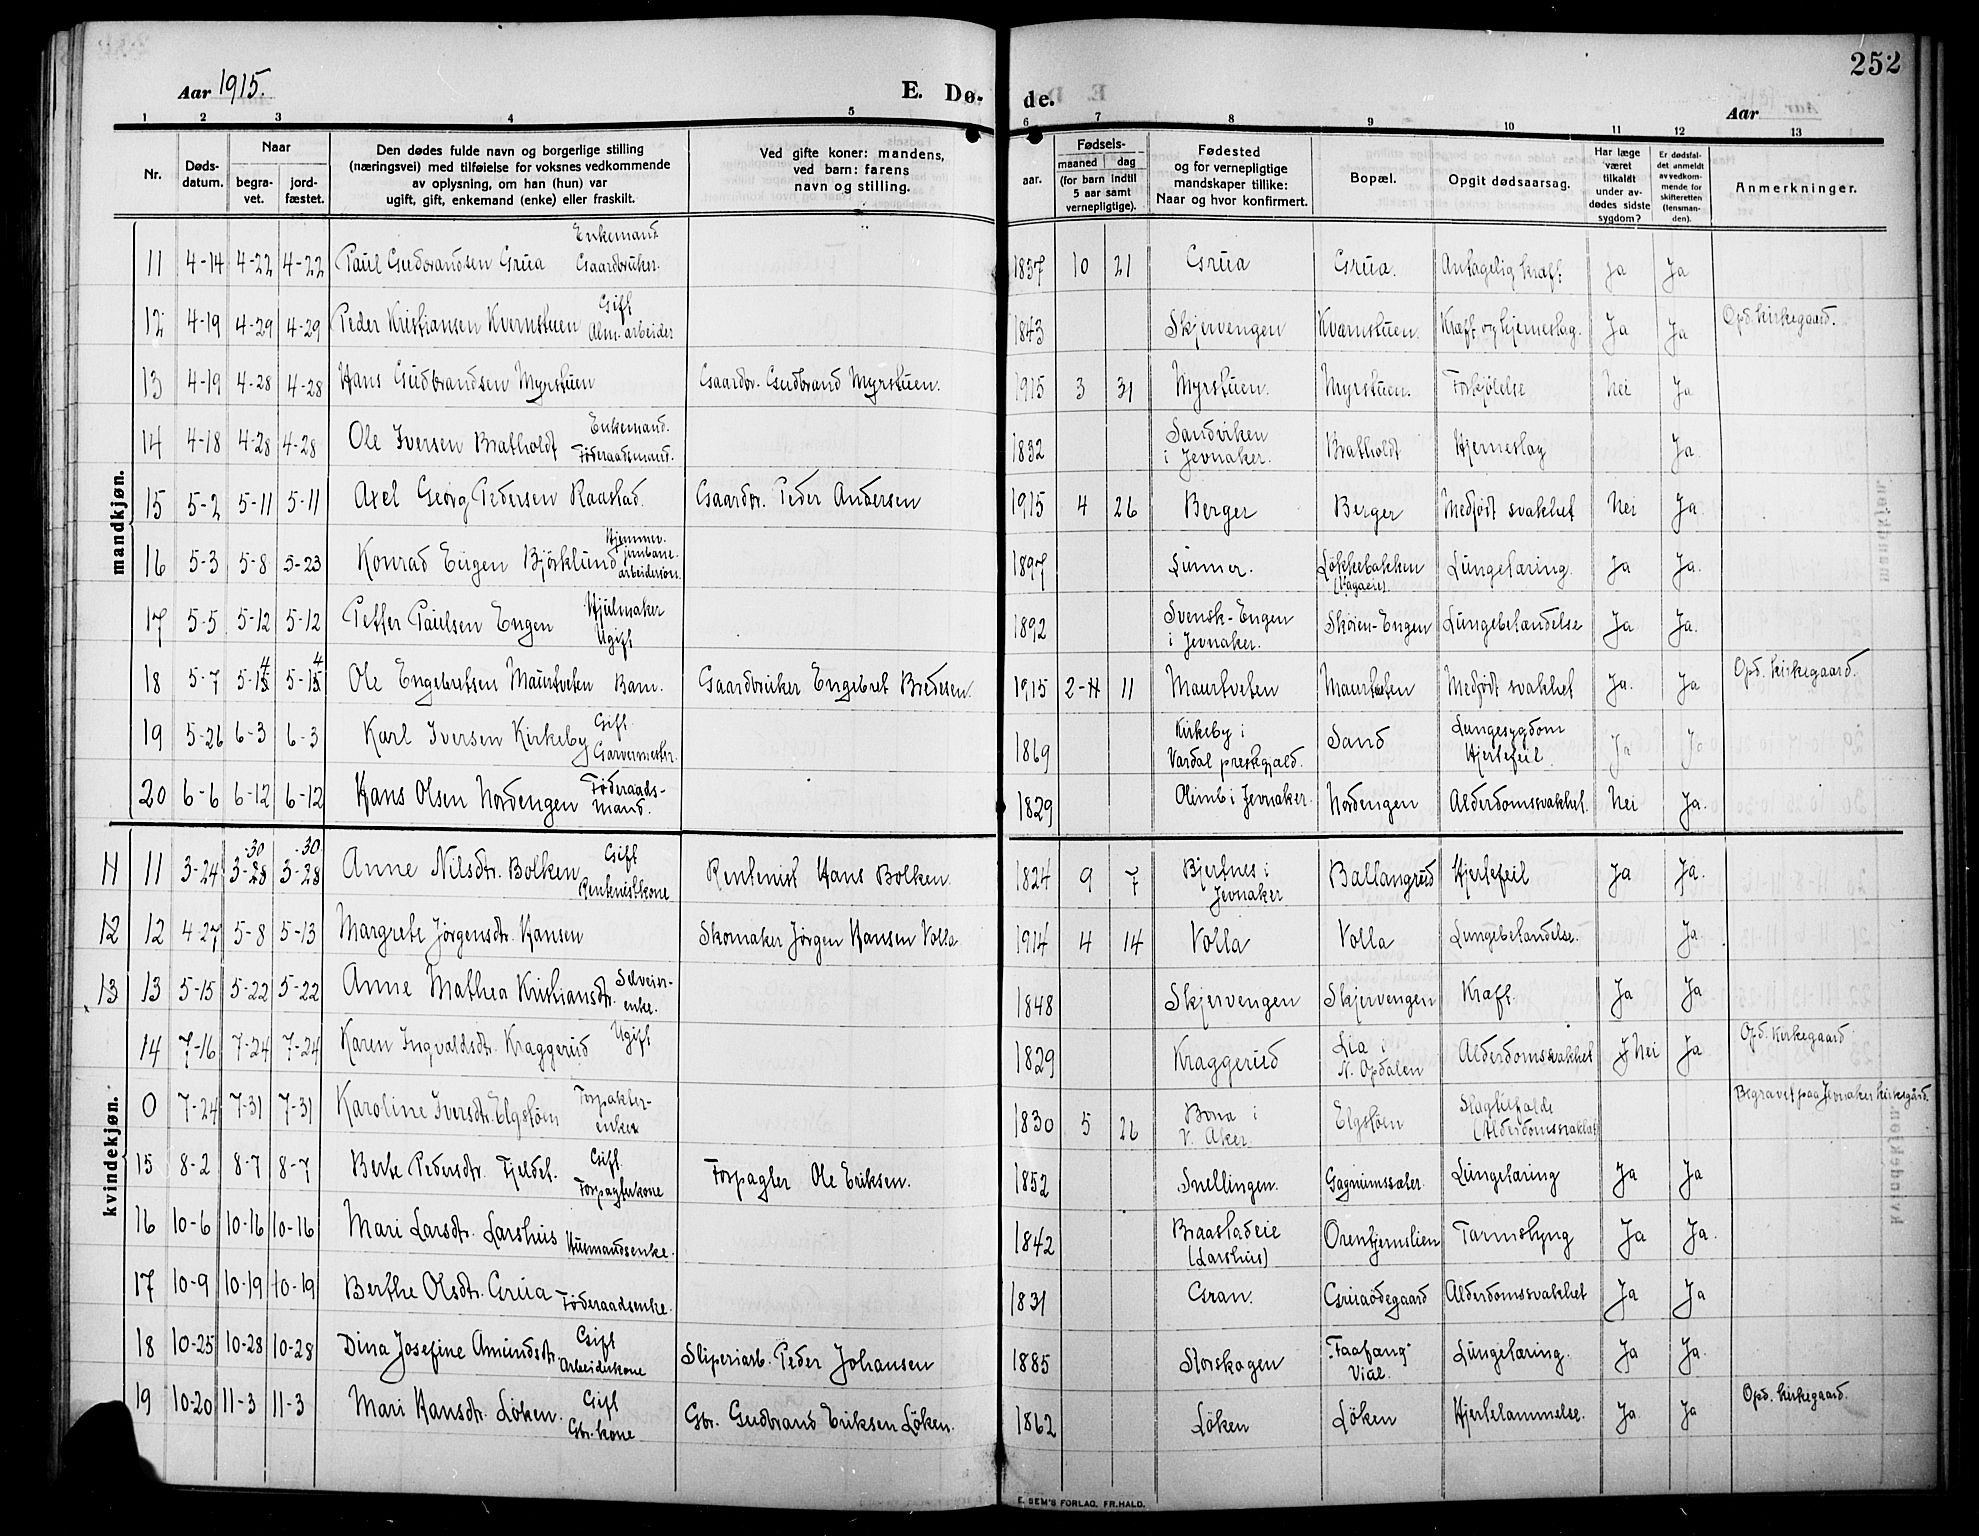 252
Aar 1915. E. Dø- de. Aar
1 2 3 4 5 6 7 8 9 10 11 12 13
Nr. Døds-datum. Naar begra-vet. jord-fæstet. Den dødes fulde navn og borgerlige stilling (næringsvei) med tilføielse for voksnes vedkommende av oplysning, om han (hun) var ugift, gift, enkemand (enke) eller fraskilt. Ved gifte koner: mandens, ved barn: farens navn og stilling. Fødsels- aar. maaned dag (for barn indtil 5 aar samt vernepligtige). Fødested og for vernepligtige mandskaper tillike: Naar og hvor konfirmert. Bopæl. Opgit dødsaarsag. Har læge været tilkaldt under av-dødes sidste sygdom? Er dødsfal-det anmeldt av vedkom-mende for skifteretten (lensman-den). Anmerkninger.
mandkjøn.
11 4-14 4-22 4-22 Paul Gudbrandsen Grua Enkemand Gaardbruker. 1837 10 21 Grua Grua. Antagelig kræft ja Ja
12 4-19 4-29 4-29 Peder Kristiansen Kvernstuen Gift Alm. arbeider 1843 Skjervengen Kværnstuen. Kræft og hjerneslag. Ja Ja Opd. kirkegaard.
13 4-19 4-28 4-28 Hans Gudbrandsen Myrstuen Gaardbr. Gudbrand Myrstuen. 1915 3 31 Myrstuen. Myrstuen. Forkjølelse Nei Ja
14 4-18 4-28 4-28 Ole Iversen Bratholdt Enkemand. Føderaadsmand. 1832 Sandviken i Jevnaker. Bratholdt Hjerneslag Ja
15 5-2 5-11 5-11 Axel Georg Pedersen Raastad. Gaardbr. Peder Andersen 1915 4 26 Berger Berger Medfødt svakhet Nei Ja
16 5-3 5-8 5-23 Konrad Eugen Björklund Hjemmev. jernbane-arbeidersön. 1897 Lunner. Løkkebakken (Vagaeie) Lungetæring. Ja Ja.
17 5-5 5-12 5-12 Petter Paulsen Engen Hjulmaker Ugift 1892 Svensk-Engen i Jevnaker. Skøien-Engen Lungebetændelse Ja Ja.
18 5-7 5-15 4 5-15 4 Ole Engebretsen Maurtveten Barn. Gaardbruker Engebret Bredesen. 1915 2-4 11 Maurtveten Maurtveten Medfødt svakhet Ja. Ja Opd. kirkegaard.
19 5-26 6-3 6-3 Karl Iversen Kirkeby Gift. Garvermester. 1869 Kirkeby i Vardal prestegjæld. Sand Lungesygdom Hjertefeil. Ja Ja
20 6-6 6-12 6-12 Hans Olsen Nordengen Føderaads-mand. 1829 Olimb i Jevnaker. Nordengen Alderdomssvakhet. Nei Ja.
kvindekjøn.
11 11 3-24 3-28 -30 3-28 -30 Anne Nilsdtr. Bolken Gift Rentenistkone Rentenist Hans Bolken. 1824 9 7 Bjertnes i Jevnaker Ballangrud Hjertefeil Ja Ja.
12 12 4-27 5-8 5-13 Margrete Jörgensdtr. Hansen Skomaker Jörgen Hansen Volla 1914 4 14 Volla Volla Lungebetændelse. Ja
13 13 5-15 5-22 5-22 Anne Mathea Kristiansdtr. Selveier-enke. 1848 Skjervengen Skjervengen Kræft Ja Ja
14 7-16 7-24 7-24 Karen Ingvaldsdtr. Kraggerud Ugift 1829 Kraggerud Lia i N. Opdalen Alderdomssvakhet J Nei Ja Opd. Kirkegaard
0 7-24 7-31 7-31 Karoline Iversdtr. Elgstøen Forpakter-enke 1830 5 26 Bona i V. Aker. Elgstøen Slagtilfælde (Alderdomssvakhet) Begravet paa Jevnaker kirkegård.
15 8-2 8-7 8-7 Berte Pedersdtr. Fjeldet. Gift. Forpagterkone Forpagter Ole Eriksen. 1852 Snellingen. Gagnumssæter. Lungetæring Ja Ja
16 10-6 10-16 10-16 Mari Larsdtr. Larshus Husmandsenke. 1842 Braastadeie (Larshus) Orentjernslien Tarmslyng Ja Ja.
17 10-9 10-19 10-19 Berthe Olsdtr. Grua Føderaadsenke. 1831 Gran. Gruaødegaard Alderdomssvakhet Ja Ja
18 10-25 10-28 10-28 Dina Josefine Amundsdtr. Gift Arbeiderkone Sliperiarb. Peder Johansen 1885 Storskogen "Faafang" Vial. Lungetæring. Ja Ja.
19 10-20 11-3 11-3 Mari Hansdtr. Løken. Gift Gbr. kone Gbr. Gudbrand Eriksen Løken. 1862 Løken Løken Hjertelammelse. Ja Ja Opd. kirkegaard.
E. SEM'S FORLAG, FR.HALD.